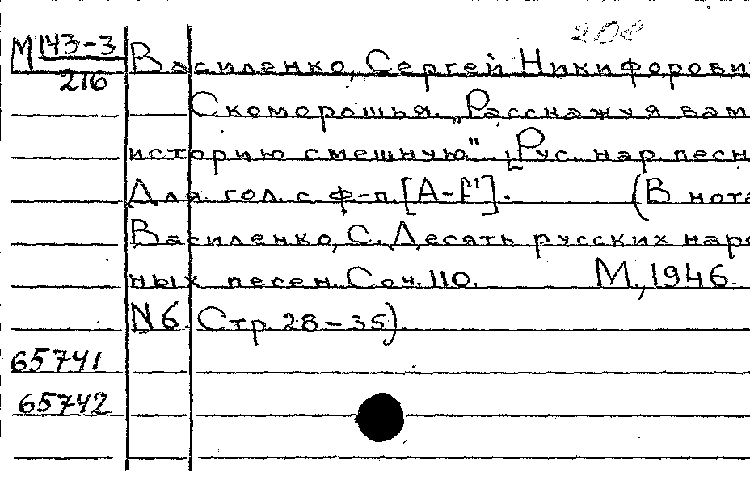 208
М 143-3
216
Василенко, Сергей Никифорови
Скоморошья. „Расскажуя вам
историю смешную" [Рус. нар песн
Для гол. с ф-п. [A-f"].   (В нота
Василенко, С. Десять русских наро
ных песен. Соч. 110.   М., 1946
N6 Стр. 28-35).
65741
65742